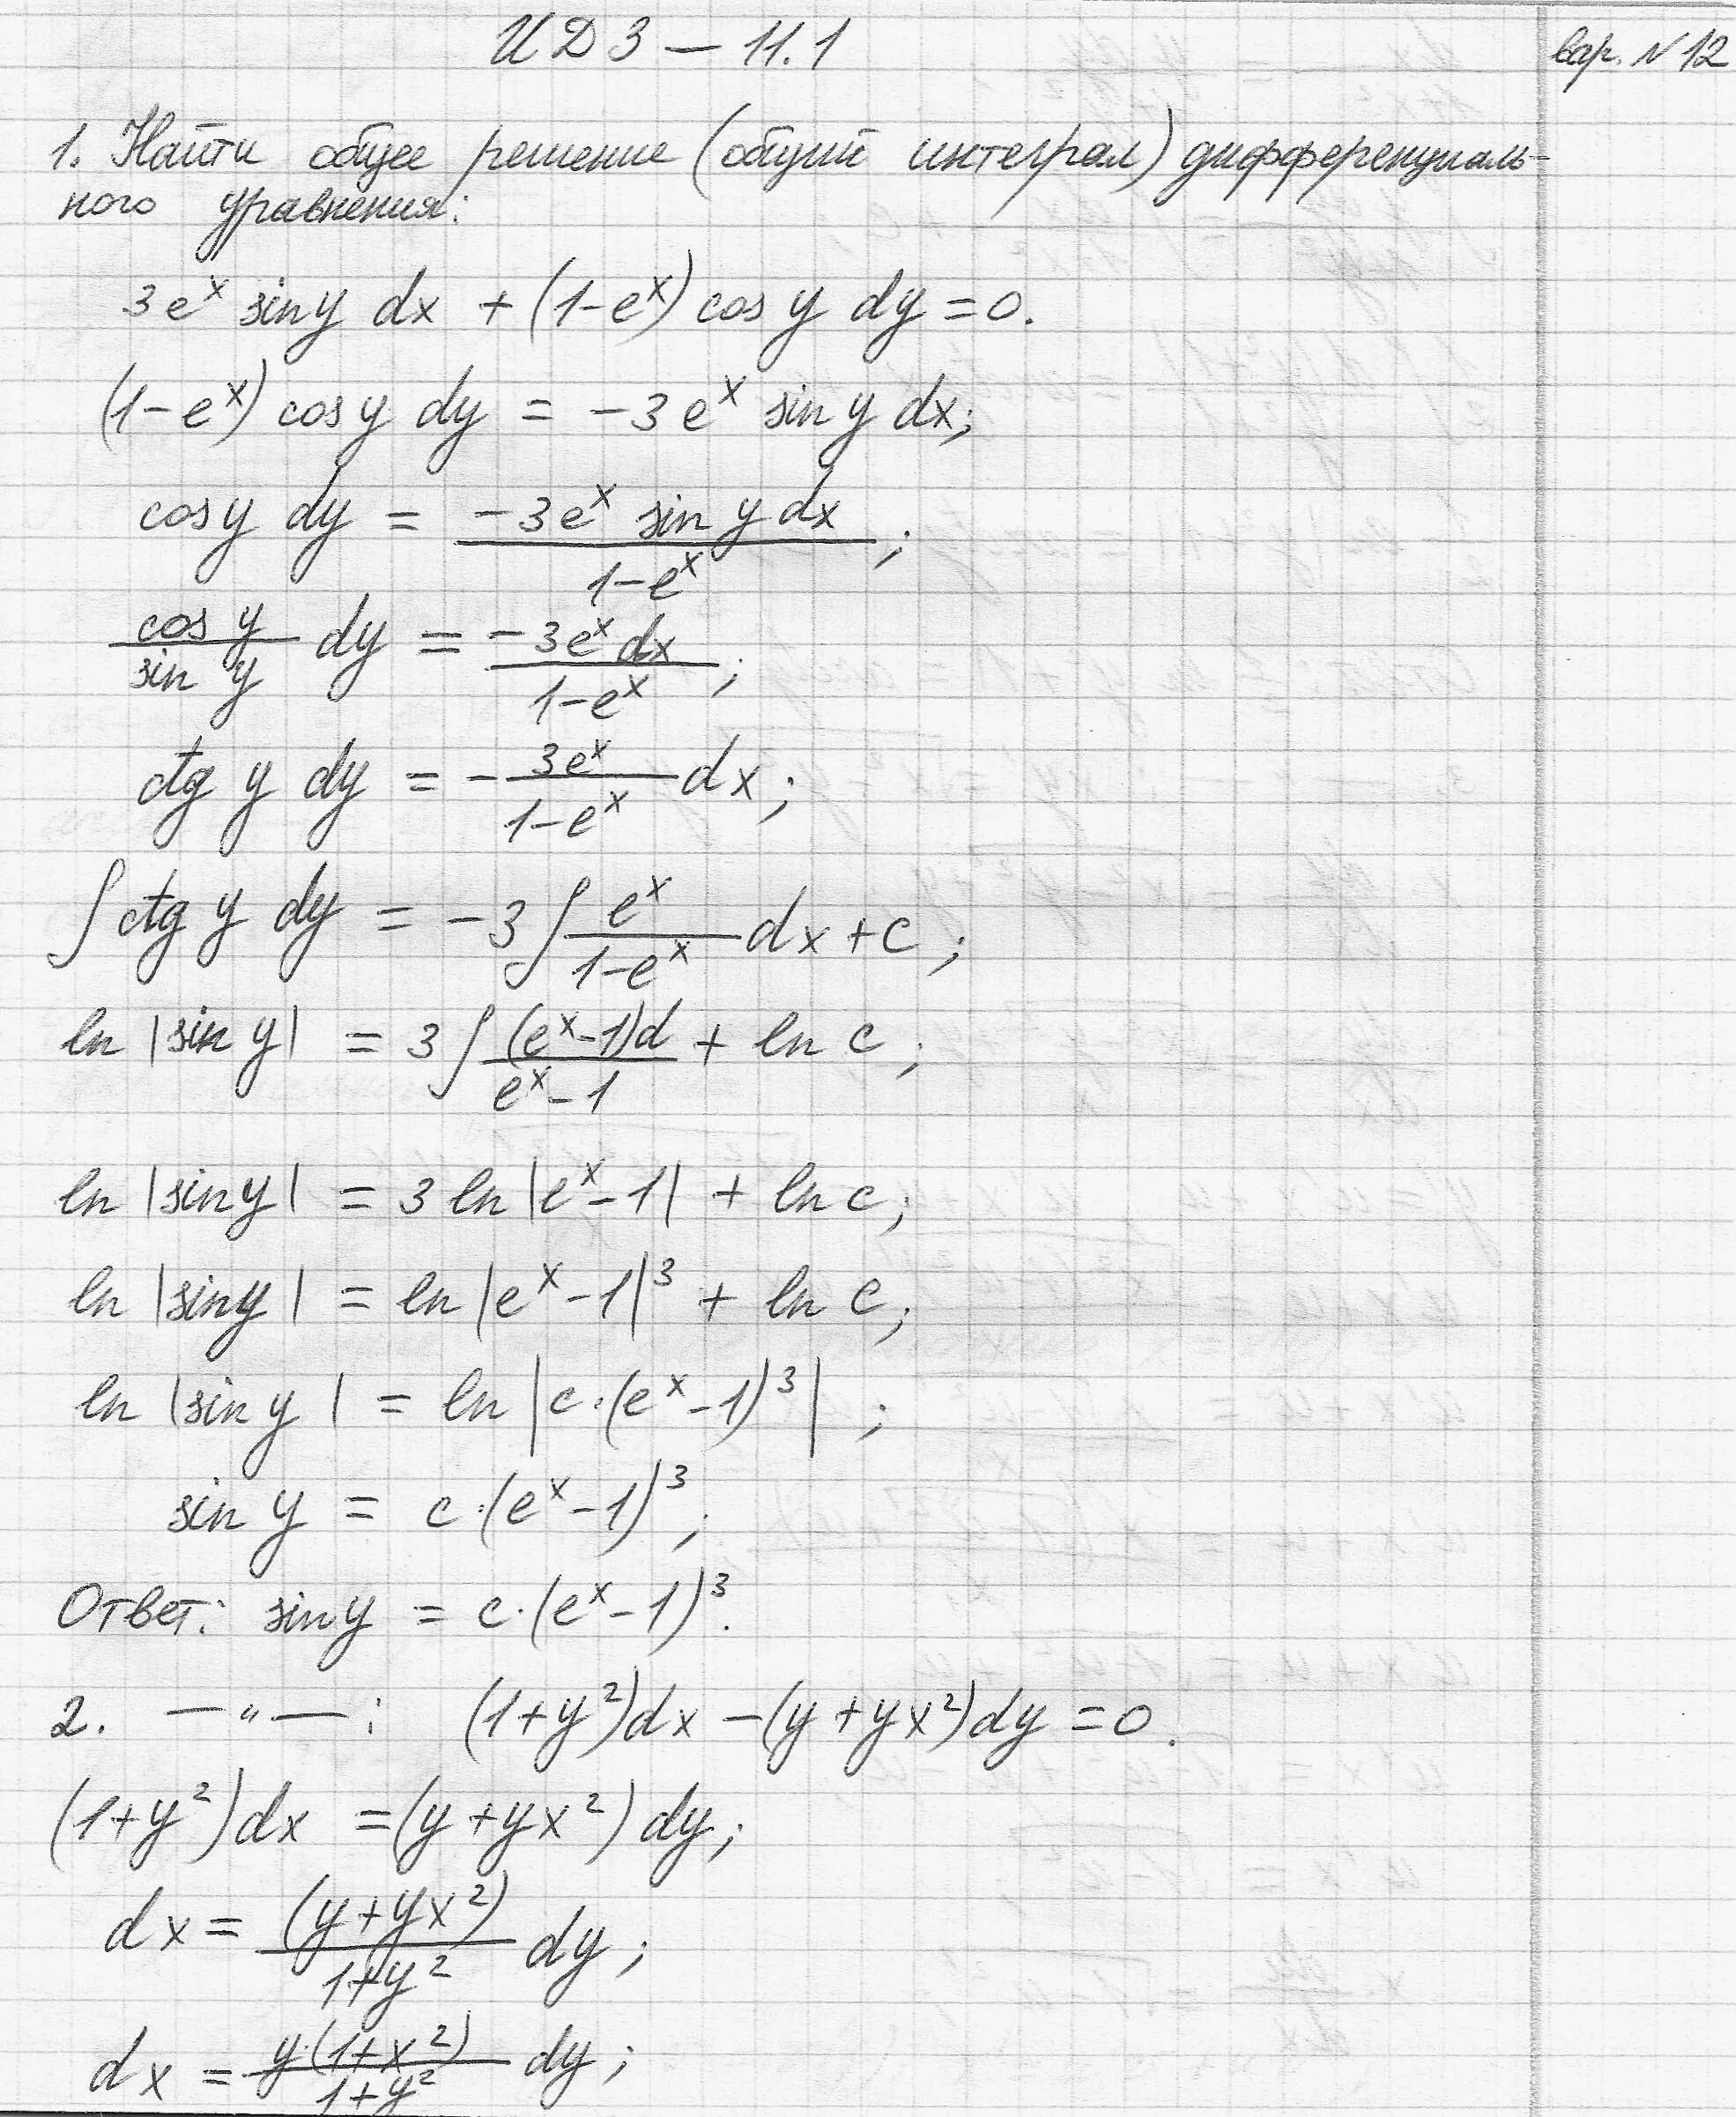 ИДЗ – 11.1
вар. N 12
1. Найти общее решение (общий интеграл) дифференциаль-
ного уравнения:
3e^x sin y dx + (1-e^x) cos y dy = 0.
(1-e^x) cos y dy = -3e^x sin y dx;
cos y dy = (-3e^x sin y dx)/(1-e^x);
(cos y)/(sin y) dy = (-3e^x dx)/(1-e^x);
ctg y dy = - (3e^x)/(1-e^x) dx;
∫ctg y dy = -3∫(e^x)/(1-e^x) dx + c;
ln |sin y| = 3∫((e^x-1)d)/(e^x-1) + ln c;
ln |sin y| = 3 ln |e^x-1| + ln c;
ln |sin y| = ln |e^x-1|^3 + ln c;
ln |sin y| = ln |c·(e^x-1)^3|;
sin y = c·(e^x-1)^3;
Ответ: sin y = c·(e^x-1)^3.
2. —"—: (1+y^2)dx –(y+yx^2)dy =0.
(1+y^2)dx =(y+yx^2) dy;
dx = ((y+yx^2))/(1+y^2) dy;
dx = (y·(1+x^2))/(1+y^2) dy;